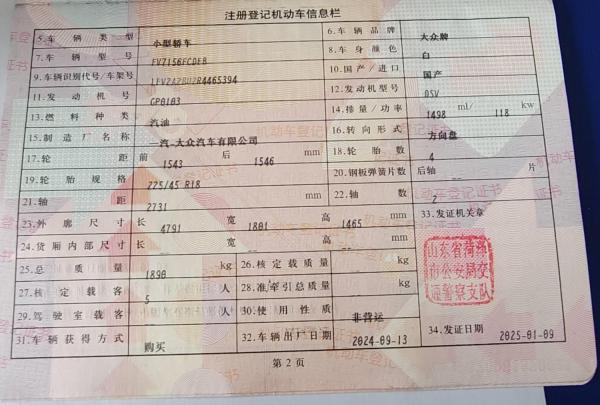 注册登记机动车信息栏
5.车辆类型 小型轿车 6.车辆品牌 大众牌
7.车辆型号 FV7156FCDEB 8.车身颜色 白
9.车辆识别代号/车架号 LFV2A2BU2R4465394 10.国产/进口 国产
11.发动机号 GP0103 12.发动机型号 DSV
13.燃料种类 汽油 14.排量/功率 1498 ml/ 118 kw
15.制造厂名称 一汽-大众汽车有限公司 16.转向形式 方向盘
17.轮距 前 1543 后 1546 mm 18.轮胎数 4
19.轮胎规格 225/45 R18 20.钢板弹簧片数 后轴 -- 片
21.轴距 2731 mm 22.轴数 2
23.外廓尺寸 长 4791 宽 1801 高 1465 mm 33.发证机关章
24.货厢内部尺寸 长 -- 宽 -- 高 -- mm
25.总质量 1890 kg 26.核定载质量 -- kg
27.核定载客 5 人 28.准牵引总质量 -- kg
29.驾驶室载客 -- 人 30.使用性质 非营运
31.车辆获得方式 购买 32.车辆出厂日期 2024-09-13 34.发证日期 2025-01-09
山东省菏泽
市公安局交
通警察支队
第2页